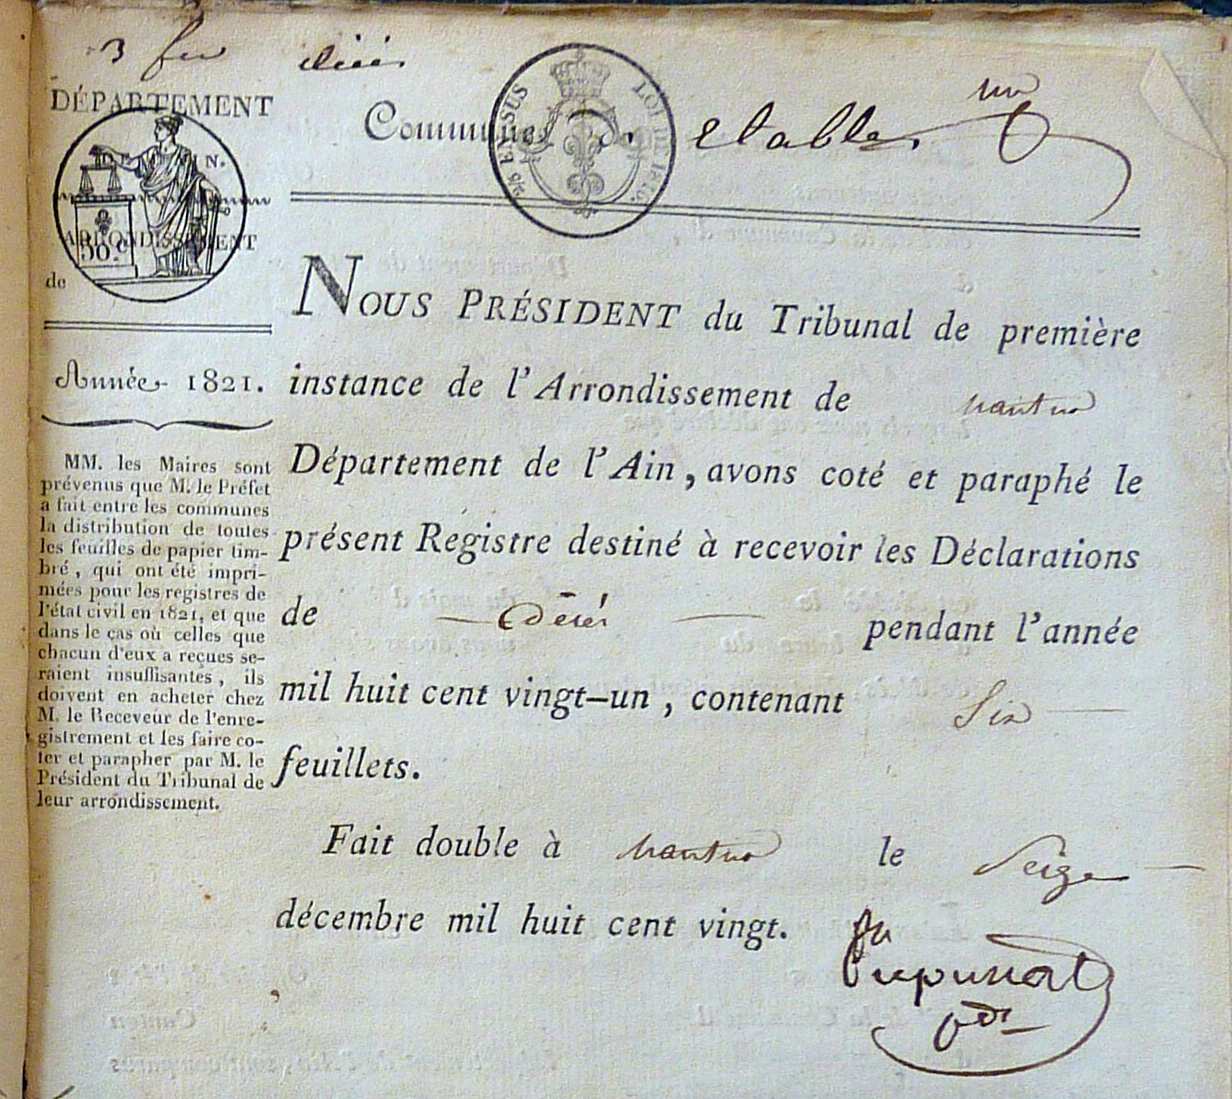 3 feu
DÉPARTEMENT
DE L'AIN.
ARRONDISSEMENT
50.c
de
Année 1821.
MM. les Maires sont
prévenus que M. le Préfet
a fait entre les communes
la distribution de toutes
les feuilles de papier tim-
bré, qui ont été impri-
mées pour les registres de
l'état civil en 1821, et que
dans le cas où celles que
chacun d'eux a reçues se-
raient insuffisantes, ils
doivent en acheter chez
M. le Receveur de l'enre-
gistrement et les faire co-
ter et parapher par M. le
Président du Tribunal de
leur arrondissement.
un
Commune d' Etables
EN SUS LOI DE 1816.
NOUS PRÉSIDENT du Tribunal de première
instance de l'Arrondissement de nantua
Département de l'Ain, avons coté et paraphé le
présent Registre destiné à recevoir les Déclarations
de Décès pendant l'année
mil huit cent vingt-un, contenant Six
feuillets.
Fait double à nantua le Seize
décembre mil huit cent vingt.